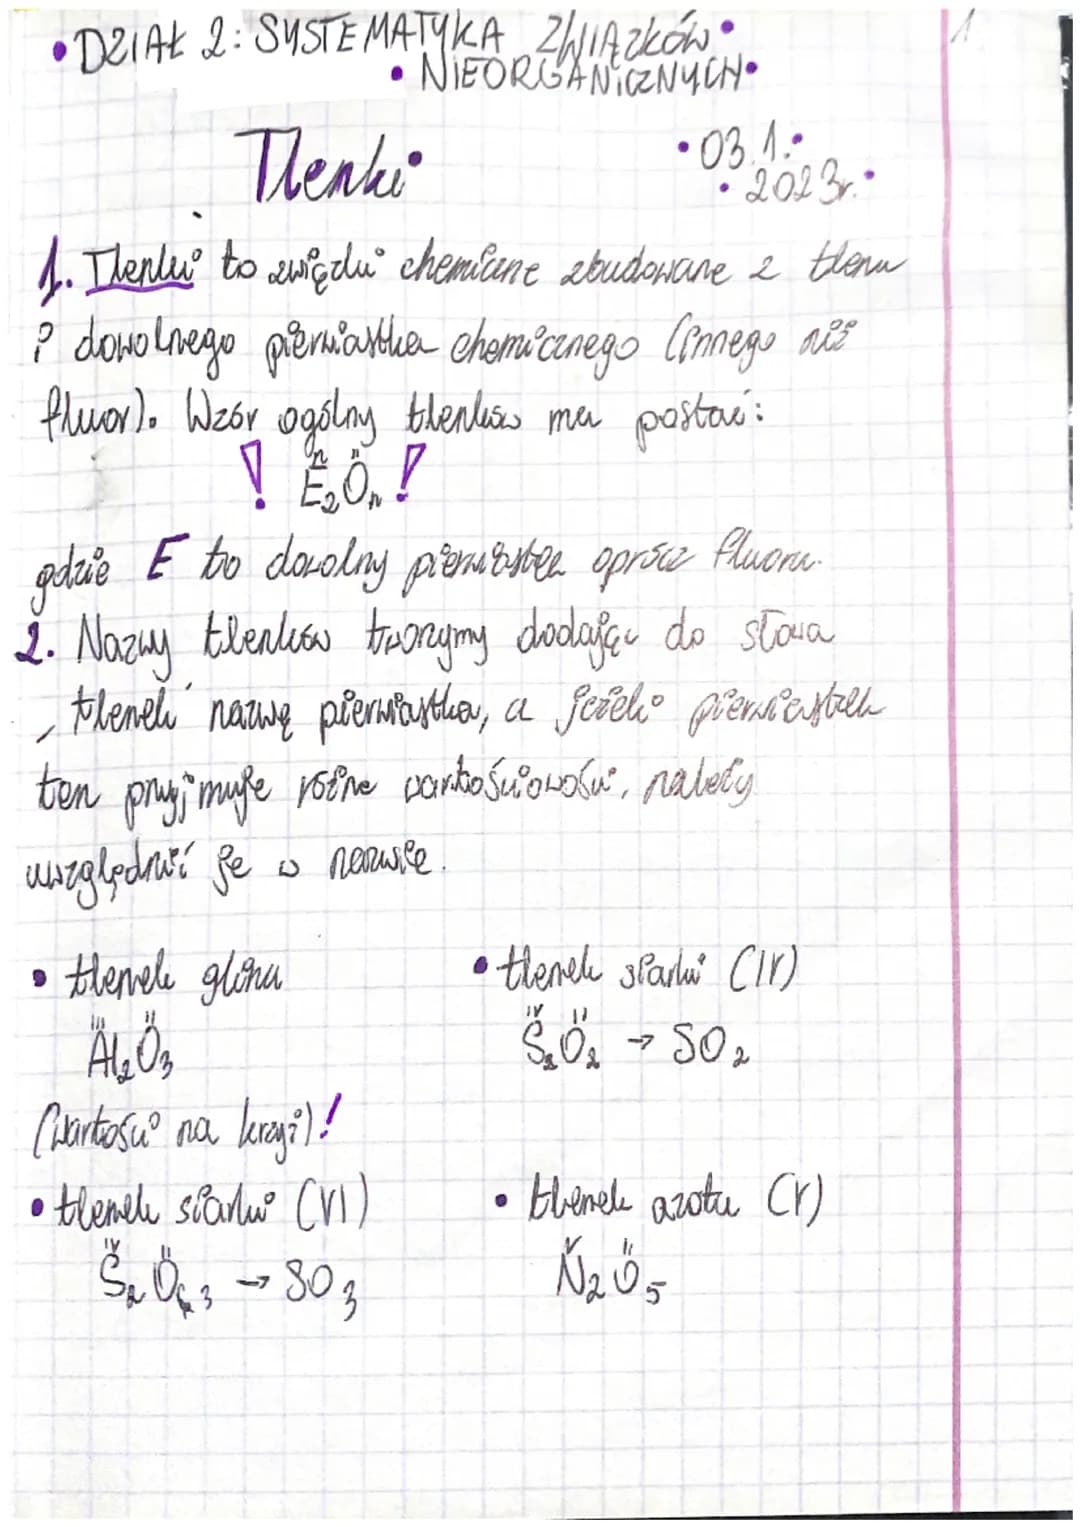 • DZIAŁ 2: SYSTEMATYKA ZWIĄZKÓW •
• NIEORGANICZNYCH •
1
Tlenki
• 03.1. •
• 2023r. •
1. Tlenki to związki chemiczne zbudowane z tlenu
i dowolnego pierwiastka chemicznego (innego niż
fluor). Wzór ogólny tlenków ma postać:
! E₂Oₙ !
n II
gdzie E to dowolny pierwiastek oprócz fluoru.
2. Nazwy tlenków tworzymy dodając do słowa
„tlenek" nazwę pierwiastka, a jeżeli pierwiastek
ten przyjmuje różne wartościowości, należy
uwzględnić je w nazwie.
• tlenek glinu
III II
Al₂O₃
(wartości na krzyż)!
• tlenek siarki (IV)
IV II
S₂O₂ → SO₂
• tlenek siarki (VI)
II
S₂O₃ → SO₃
• tlenek azotu (V)
V II
N₂O₅